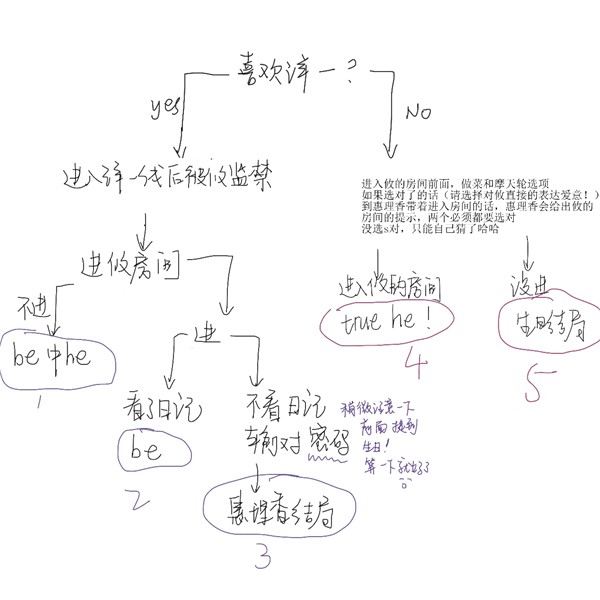 喜欢淳一?
yes
No
进入淳一线后被攸监禁
进入攸的房间前面，做菜和摩天轮选项
如果选对了的话（请选择对攸直接的表达爱意！）
到惠理香带着进入房间的话，惠理香会给出攸的
房间的提示，两个必须都要选对
没选s对，只能自己猜了哈哈
进攸房间
不进
be 中he
1
进
进入攸的房间
true he!
4
没进
生日结局
5
看了日记
be
2
不看日记
输对密码
稍微注意一下
前面提到
生日!
算一下就出了
惠理香结局
3